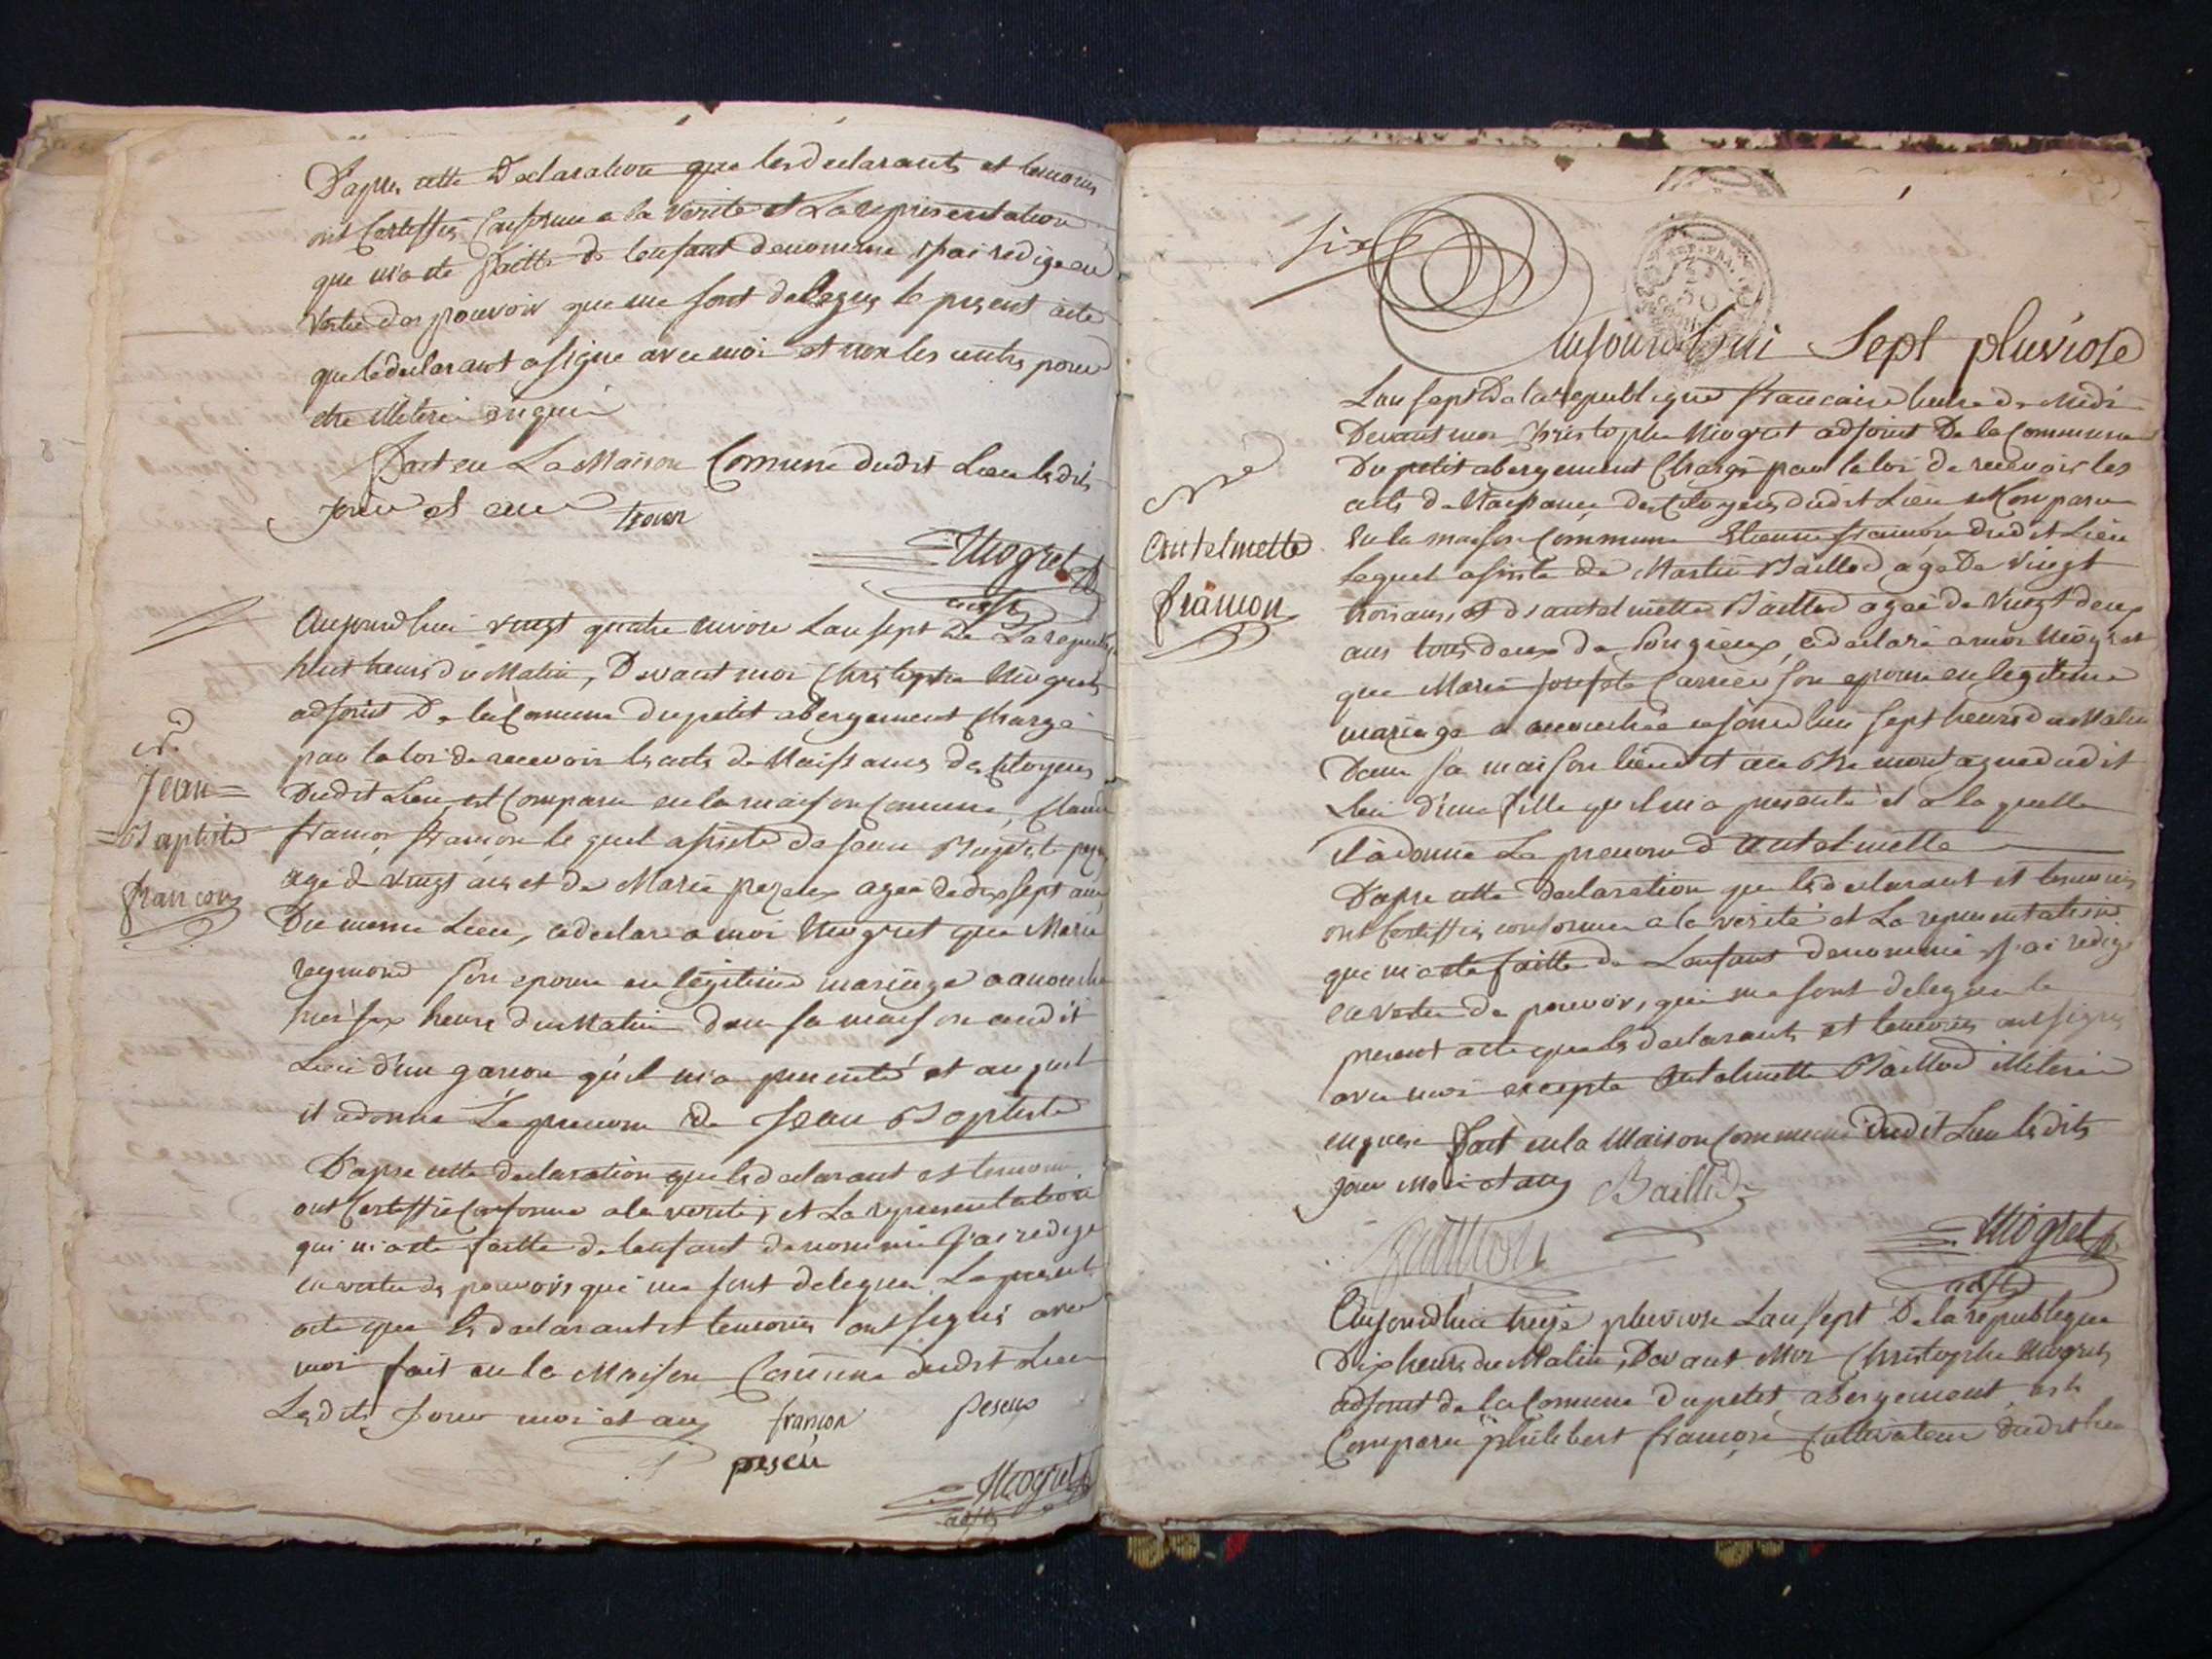 D'apres cette Declaration que les declarants et temoins
ont Certiffié Conforme a la Verité et La representation
que m'a eté faitte de lenfant denommé J'ai redigé en
Vertu des pouvoir que me sont delegués le present acte
que le declarant a signé avec moi et non les autres pour
etre illiteré enquis
Fait en La Maison Comune dudit Lieu lesdits
Jour et an
Miogret
adjt
Aujourdhui vingt quatre nivose Lan sept de La republi
huit heures du Matin, Devant moi Christophe Miogret
adjoint De la Comune du petit abergement Chargé
par la loi de recevoir les acts de Naissance des Citoyens
Dudit Lieu est Comparu en la maison Comune, Claude
françois françon le quel assisté de Jean
agé de vingt ans et de Marie pezeux agée de dix sept ans
Du meme Lieu, a declaré a moi Miogret que Marie
reymond son epouse en légitime mariage a accouché
hier six heure du Matin dans sa maison audit
Lieu d'un garçon qu'il m'a presenté et au quel
il a donné Le prenom de Jean Baptiste
D'apre cette declaration que le declarant et temoins
ont Certiffié Conforme a la verité, et La representation
qui m'a eté faitte de lenfant denommé J'ai redigé
en vertu des pouvoirs qui me sont delegués Le present
acte que les declarant et temoins ont signés avec
moi fait en la Maison Comune dudit Lieu
Lesdits Jour moi et an françon peseux
peseu
Miogret
adjt
N.
Jean=
=Baptiste
françon
six
REP. FRA.
50
Aujourdhui Sept pluviose
Lan sept De la republique francaise heure de Midi
Devant moi Christophe Miogret adjoint De la Commune
Du petit abergement Chargé par la loi de recevoir les
acts de Naissance des Citoyens dudit Lieu est Comparu
En la maison Commune Etienne françon dudit Lieu
lequel assisté de Martin Baillod agé De Vingt
trois ans, et d'antelmette Baillod agée de Vingt deux
ans tous deux de Songieux, a declaré a moi Miogret
que Marie Josephte Carrier son epouse en legitime
mariage a accouchée cejourdhui sept heures du Matin
Dans sa maison audit
Lieu d'une fille qu'il m'a presenté et a la quelle
il a donné Le prenom d'Antelmette
D'apre cette declaration que le declarant et temoins
ont Certiffiés conforme a la verité et La representation
qui m'a eté faitte de Lenfant denommé J'ai redigé
en vertu de pouvoirs qui me sont delegués le
present acte que les declarants et temoins ont signés
avec moi excepté Antelmette Baillod illiterée
enquise fait en la Maison Commune dudit Lieu lesdits
jour Moi et an Baillod
françon
Miogret
adjt
Né
Antelmette
françon
Aujourdhui treize pluviose Lan sept De la republique
Dix heures du Matin, Devant Moi Christophe Miogret
adjoint de la Comune du petit abergement, est
Comparu philibert françon Cultivateur dudit lieu